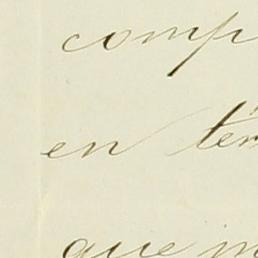 comp
en tér
que m